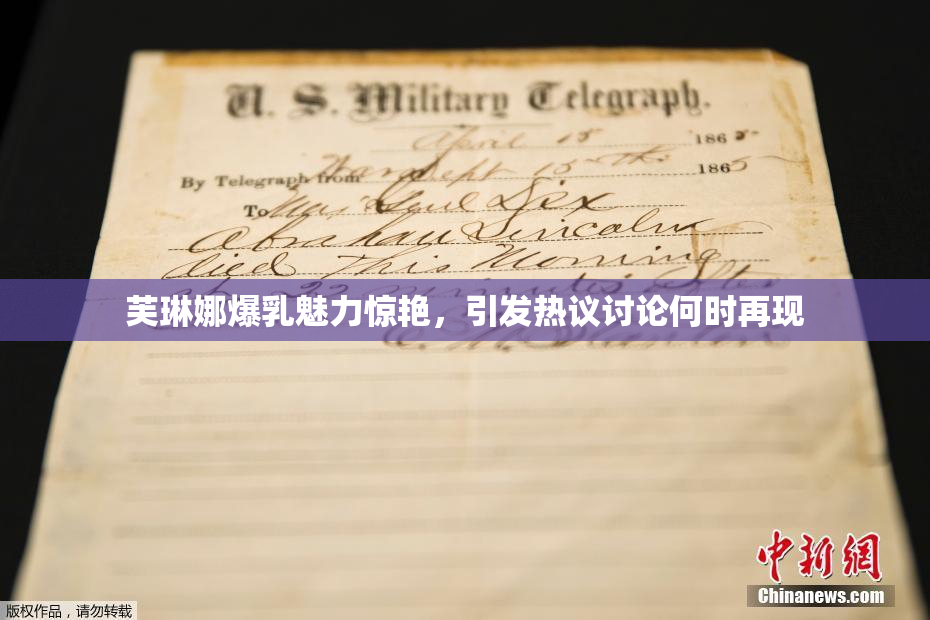 U. S. Military Telegraph.
April 15 1865
By Telegraph from War Dept 15th 1865
To Maj Genl Dix
Abraham Lincoln
died This Morning
at 22 minutes after
芙琳娜爆乳魅力惊艳，引发热议讨论何时再现
E. M. Stanton
中新网
Chinanews.com
版权作品，请勿转载